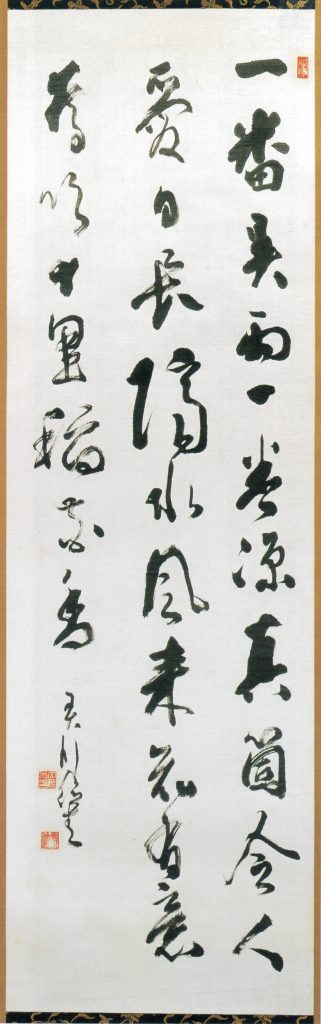 一番雨一番涼真箇令人
愛日長隔水風来知有意
為吹十里稲花香